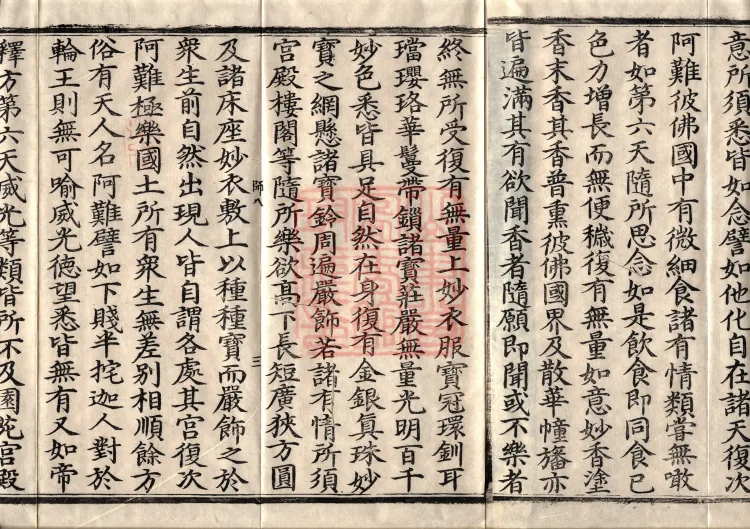 意所須悉皆如念譬如他化自在諸天復次
阿難彼佛國中有微細食諸有情類甞無噉
者如第六天隨所思念如是飲食即同食已
色力增長而無便穢復有無量如意妙香塗
香末香其香普熏彼佛國界及散華幢旛亦
皆遍滿其有欲聞香者隨願即聞或不樂者
終無所受復有無量上妙衣服寶冠環釧耳
璫瓔珞華鬘帶鎖諸寶莊嚴無量光明百千
妙色悉皆具足自然在身復有金銀真珠妙
寶之網懸諸寶鈴周遍嚴飾若諸有情所須
宮殿樓閣等隨所樂欲高下長短廣狹方圓
及諸床座妙衣敷上以種種寶而嚴飾之於
師八 三
衆生前自然出現人皆自謂各處其宮復次
阿難極樂國土所有衆生無差別相順餘方
俗有天人名阿難譬如下賤半挓迦人對於
輪王則無可喻威光德望悉皆無有又如帝
釋方第六天威光等類皆所不及園苑宮殿